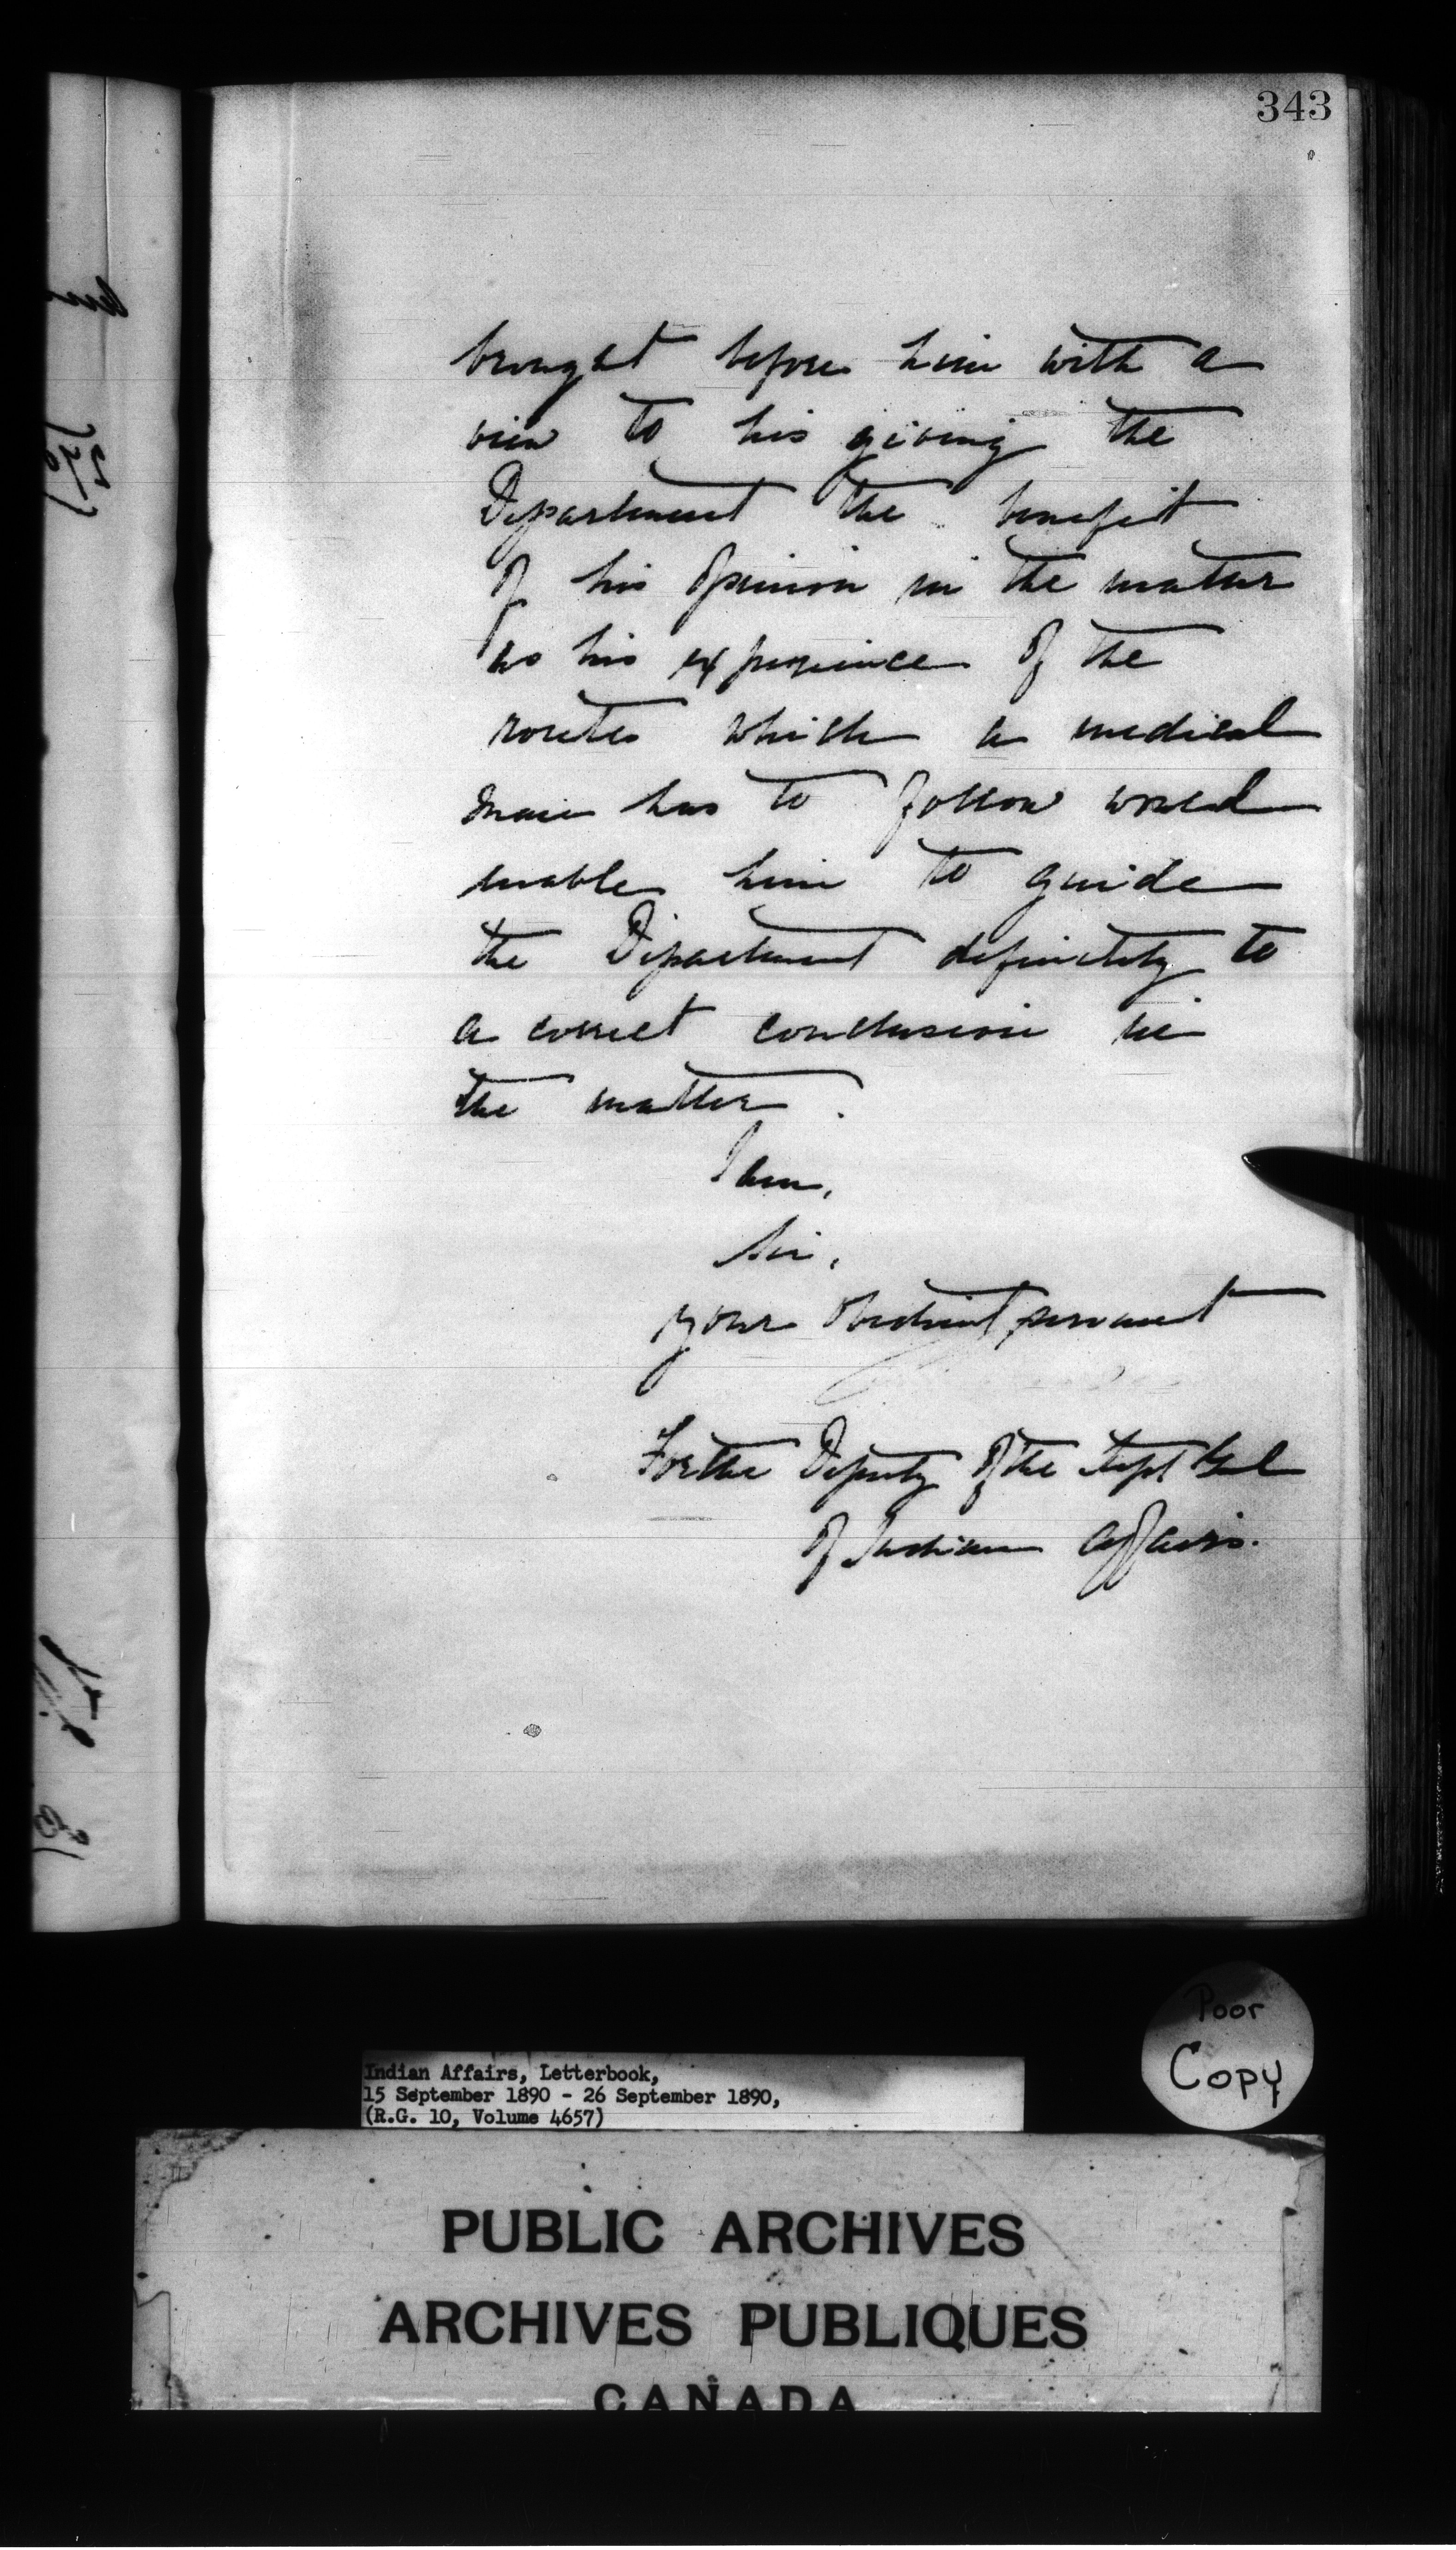 343
brought before him with a
view to his giving the
Department the benefit
of his opinion in the matter
as his experience of the
routes which a medical
man has to follow would
enable him to guide
the Department definitely to
a correct conclusion in
the matter.
I am,
Sir,
your obedient servant
For the Deputy of the Supt Genl
of Indian Affairs.
Poor
Copy
Indian Affairs, Letterbook,
15 September 1890 - 26 September 1890,
(R.G. 10, Volume 4657)
PUBLIC ARCHIVES
ARCHIVES PUBLIQUES
CANADA